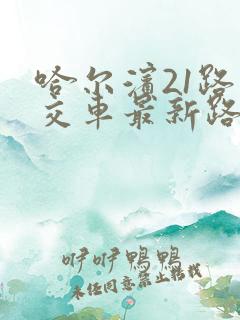 哈尔滨21路
交车最新路
咿咿鸭鸭
未经同意禁止转载